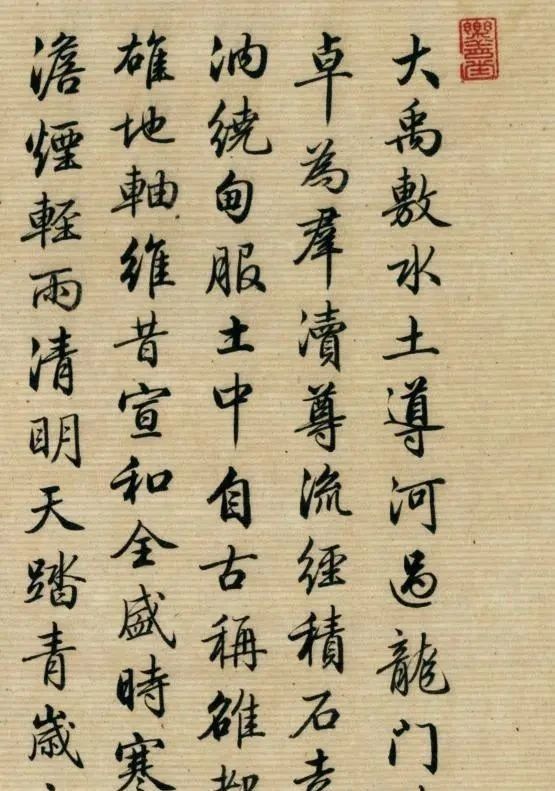 大禹敷水土導河過龍門
卓為羣瀆尊流經積石
汭繞甸服土中自古稱雒
雄地軸維昔宣和全盛時寒
澹煙輕雨清明天踏青歲